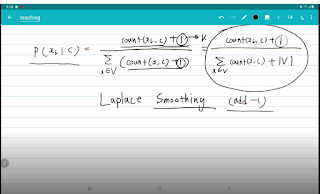 teaching
P(xₖ|C) = count(xₖ, C) + ① → K / Σ x∈V (count(x, C) + ①) = count(xₖ, C) + ① / Σ x∈V count(x, C) + |V|
Laplace Smoothing (add -1)